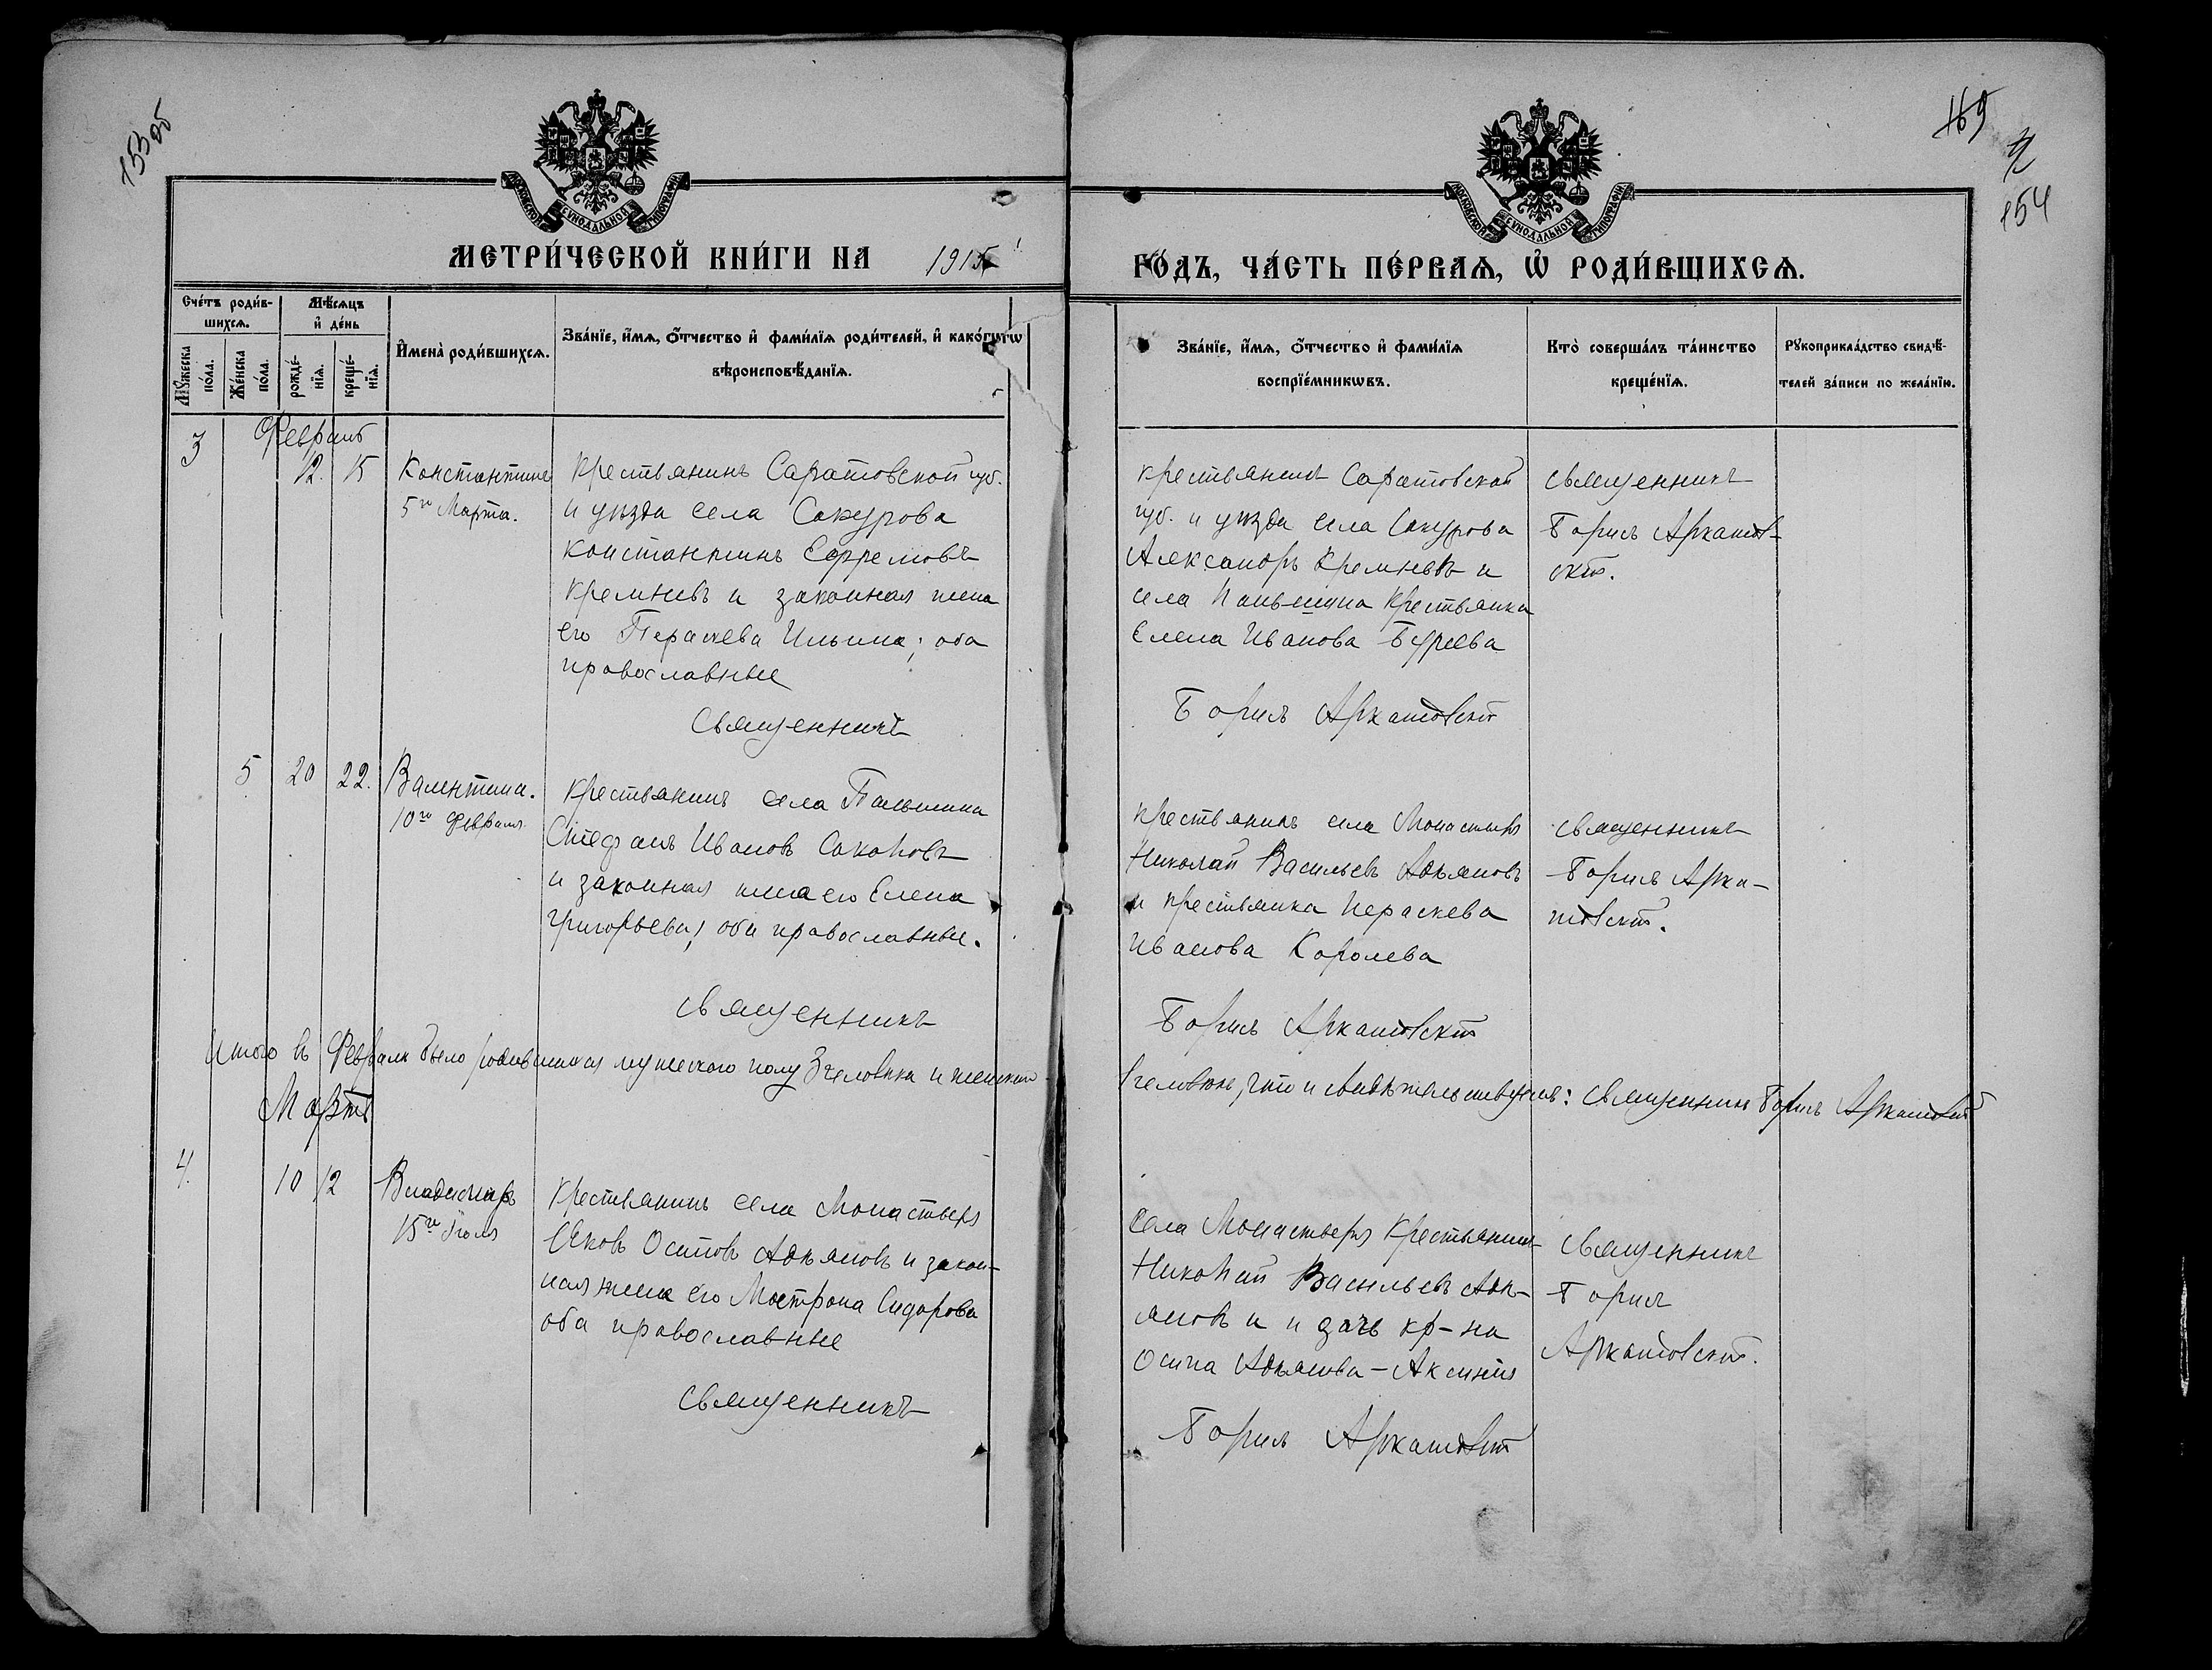 153об
169
154
МОСКОВСКОЙ СѴНОДАЛЬНОЙ ТИПОГРАФІИ
МОСКОВСКОЙ СѴНОДАЛЬНОЙ ТИПОГРАФІИ
МЕТРИ́ЧЕСКОЙ КНИ́ГИ НА 1915
ГО́ДЪ, ЧА́СТЬ ПЕ́РВАѦ, Ѡ҆ РОДИ́ВШИХСѦ.
Сче́тъ роди́в-
шихсѧ.
Мѣ́сѧцъ
и҆ де́нь
Мꙋ́жеска
по́ла.
Же́нска
по́ла.
рожде́-
нїѧ.
креще́-
нїѧ.
И҆мена̀ роди́вшихсѧ.
Зва́нїе, и҆́мѧ, ѻ҆́тчество и҆ фами́лїѧ роди́телей, и҆ како́гѡ
вѣроисповѣ́данїѧ.
Зва́нїе, и҆́мѧ, ѻ҆́тчество и҆ фами́лїѧ
воспрїе́мникѡвъ.
Кто̀ соверша́лъ та́инство
креще́нїѧ.
Рꙋкоприкла́дство свидѣ́-
телей за́писи по жела́нїю.
Февраль
3 12. 15 Константинъ
5го Марта.
Крестьянинъ Саратовской губ.
и уѣзда села Сокурова
Константинъ Ефремовъ
Кремневъ и законная жена
его Параскева Ильина; оба
православные
Священникъ
крестьянинъ Саратовской
губ. и уѣзда села Сокурова
Александръ Кремневъ и
села Паньшина крестьянка
Елена Иванова Буреева
Борисъ Аркатовскій
священникъ
Борисъ Аркатов-
скій.
5 20 22. Валентина.
10го Февраля
Крестьянинъ села Паньшина
Стефанъ Ивановъ
и законная жена его Елена
Григорьева, оба православные.
Священникъ
крестьянинъ села Монастыря
Николай Васильевъ
и крестьянка Параскева
Иванова Королева
Борисъ Аркатовскій
священникъ
Борисъ Арка-
товскій.
Итого въ Февралѣ было родившихся мужескаго полу 3 человѣка и женскаго
человѣка, что и свидѣтельствуемъ: священникъ Борисъ Аркатовскій
Мартъ
4. 10 12 Владиміръ
15го Іюля
Крестьянинъ села Монастыря
Яковъ Осиповъ и закон-
ная жена его Матрона Сидорова
оба православные
Священникъ
Села Монастыря крестьянинъ
Николай Васильевъ
и дочь кр-на
Осипа Аксинія
Борисъ Аркатовскій
священникъ
Борисъ
Аркатовскій.